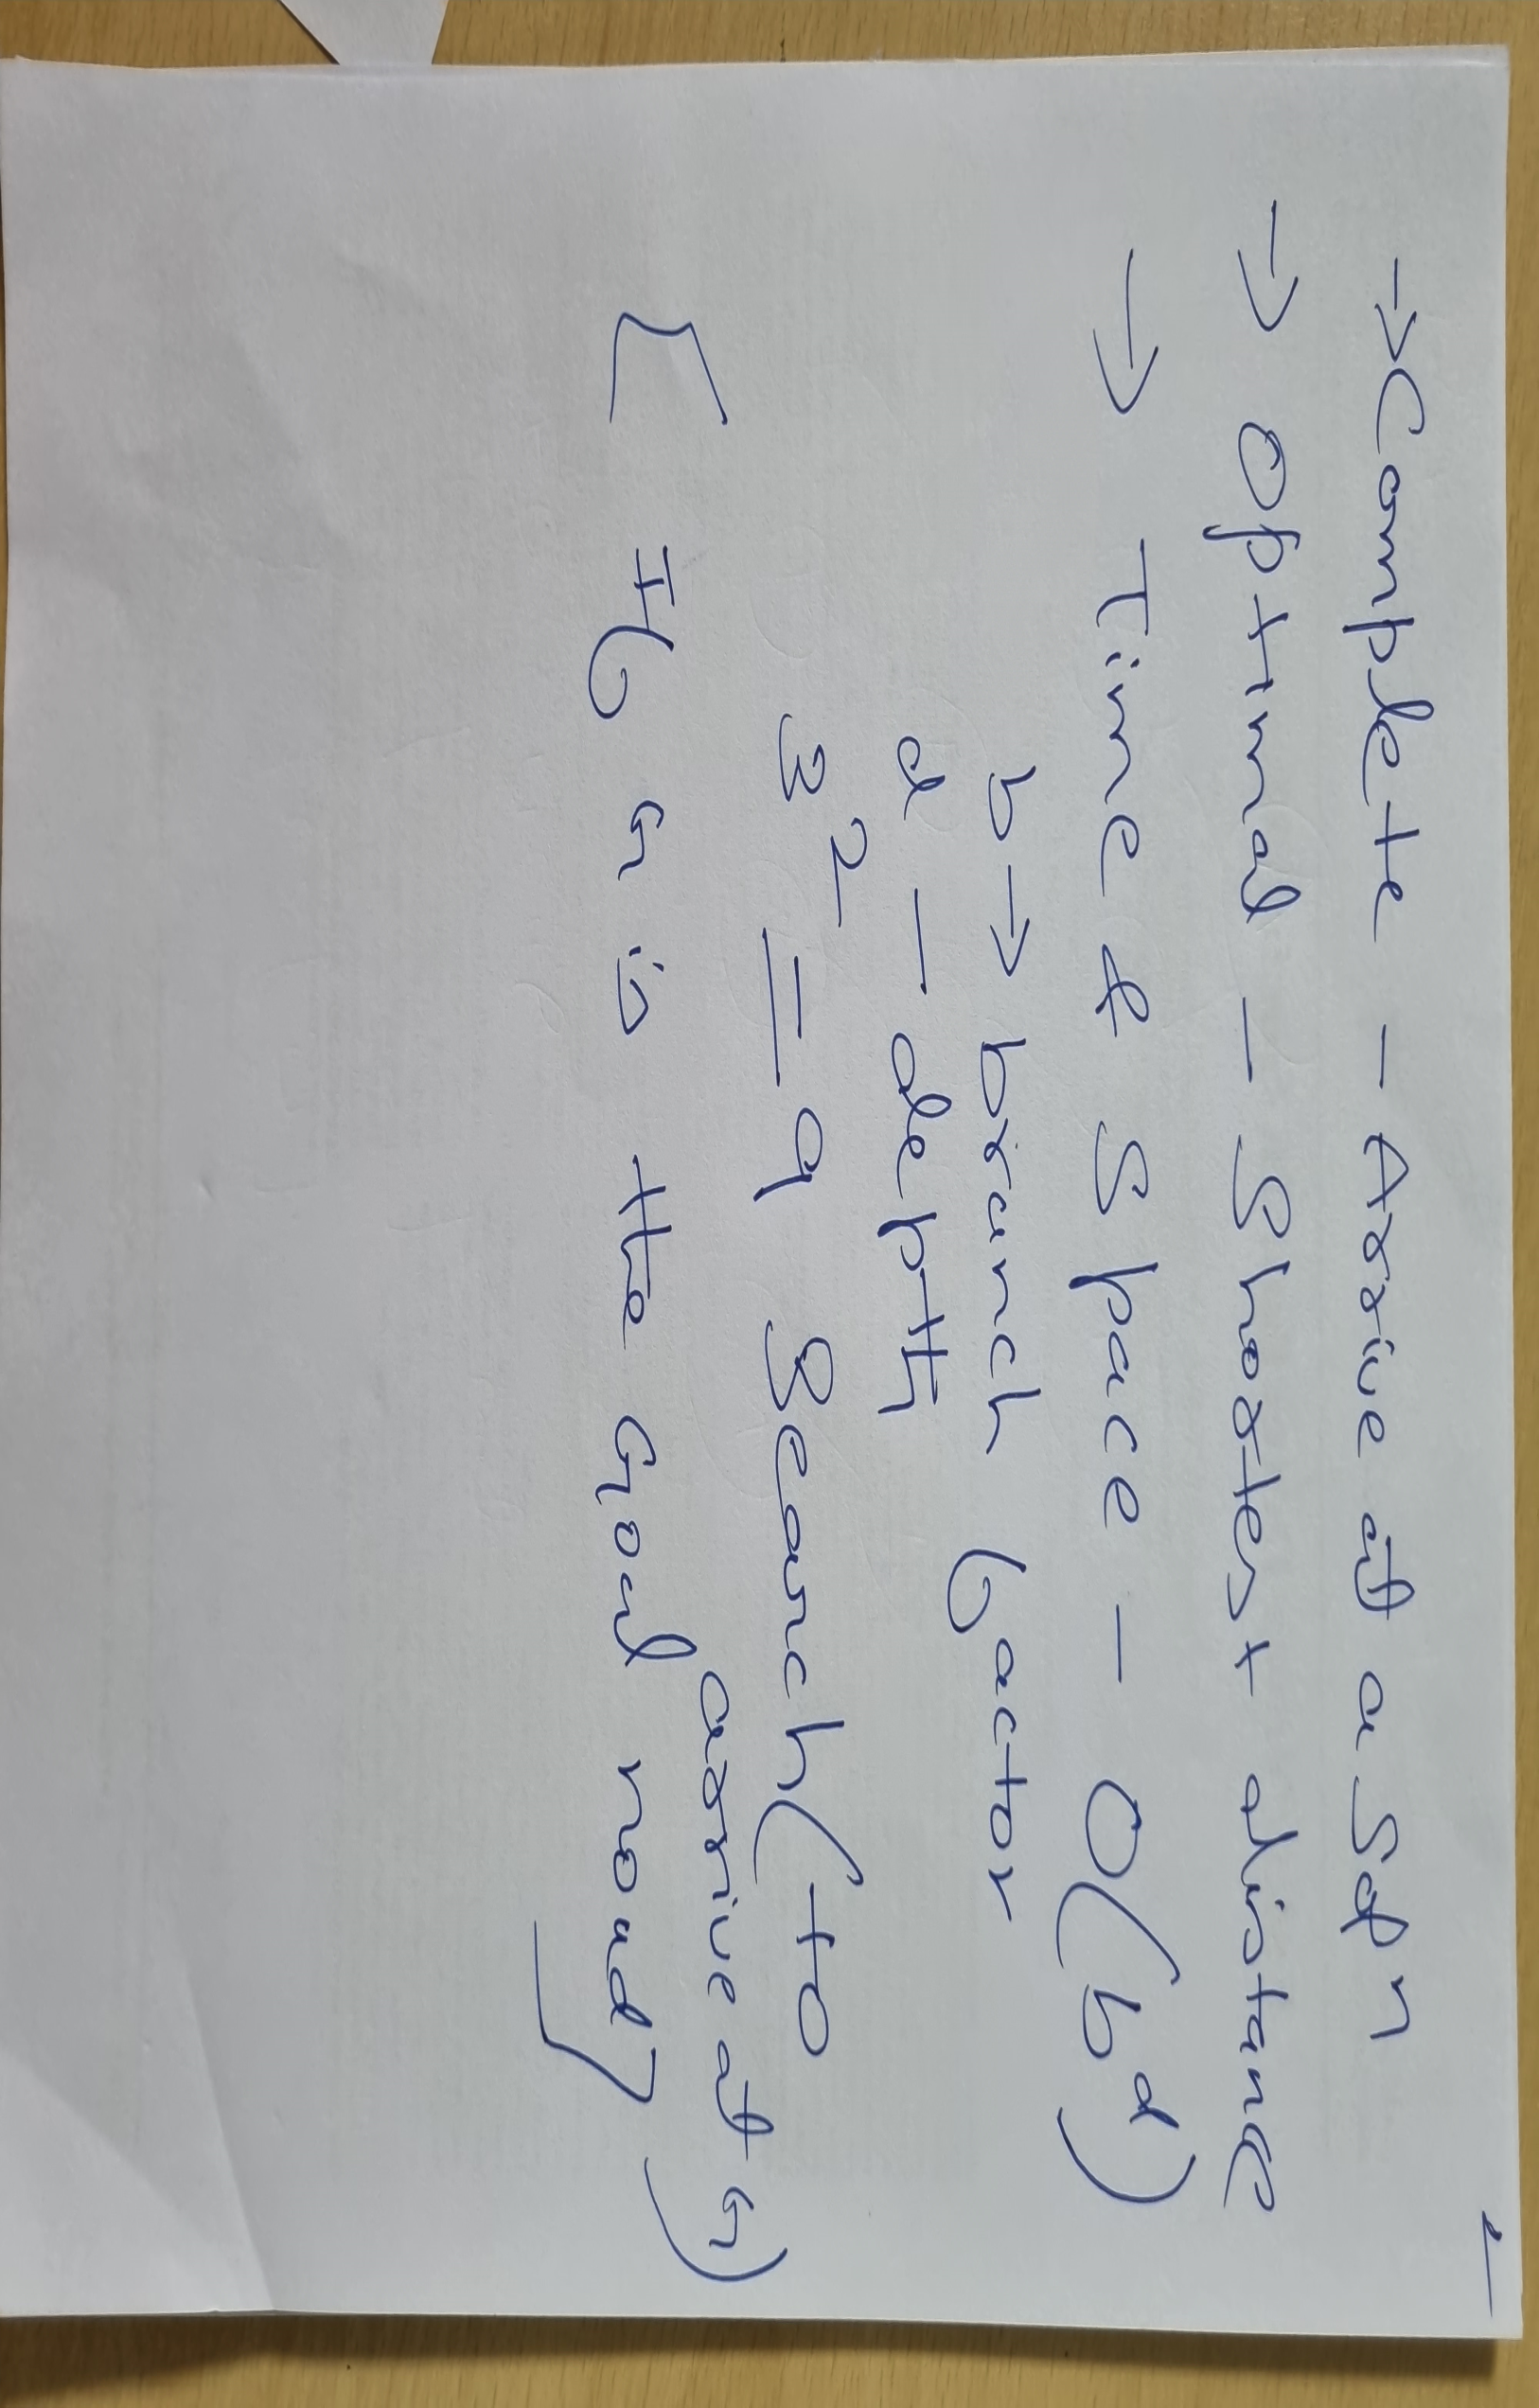 → Complete - Arrive at a Soln
→ Optimal - Shortest distance
→ Time & Space - O(b^d)
b → branch factor
d - depth
3^2 = 9 Search (to
arrive at G)
[ If G is the Goal noad]